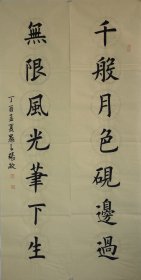 千般月色硯邊過
無限風光筆下生
丁酉孟夏